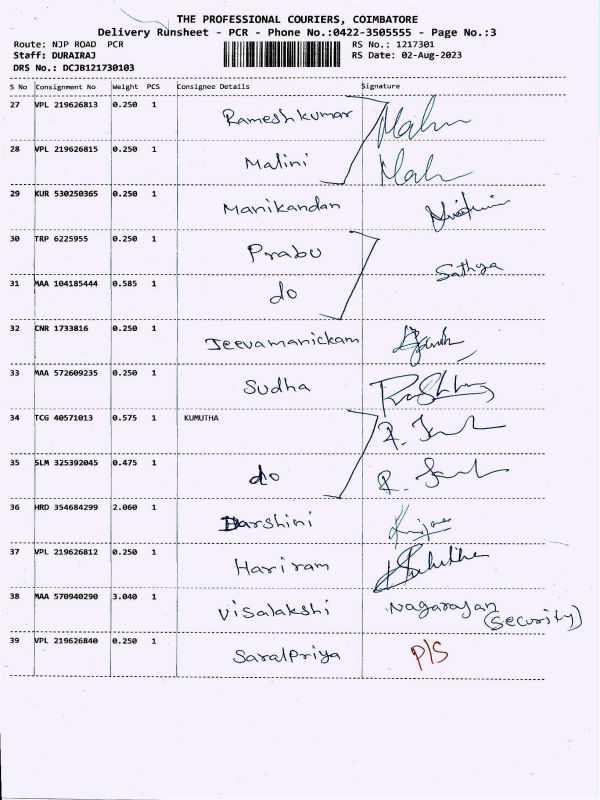 THE PROFESSIONAL COURIERS, COIMBATORE
Delivery Runsheet - PCR - Phone No.:0422-3505555 - Page No.:3
Route: NJP ROAD PCR RS No.: 1217301
Staff: DURAIRAJ RS Date: 02-Aug-2023
DRS No.: DCJB121730103
S No Consignment No Weight PCS Consignee Details Signature
27 VPL 219626813 0.250 1 Rameshkumar
28 VPL 219626815 0.250 1 Malini
29 KUR 530250365 0.250 1 Manikandan
30 TRP 6225955 0.250 1 Prabu
Sathya
31 MAA 104185444 0.585 1 do
32 CNR 1733816 0.250 1 Jeevamanickam
33 MAA 572609235 0.250 1 Sudha
34 TCG 40571013 0.575 1 KUMUTHA
35 SLM 325392045 0.475 1 do
36 HRD 354684299 2.060 1 Harshini
37 VPL 219626812 0.250 1 Hariram
38 MAA 570940290 3.040 1 Visalakshi Nagarajan
(Security)
39 VPL 219626840 0.250 1 Saralpriya P/S